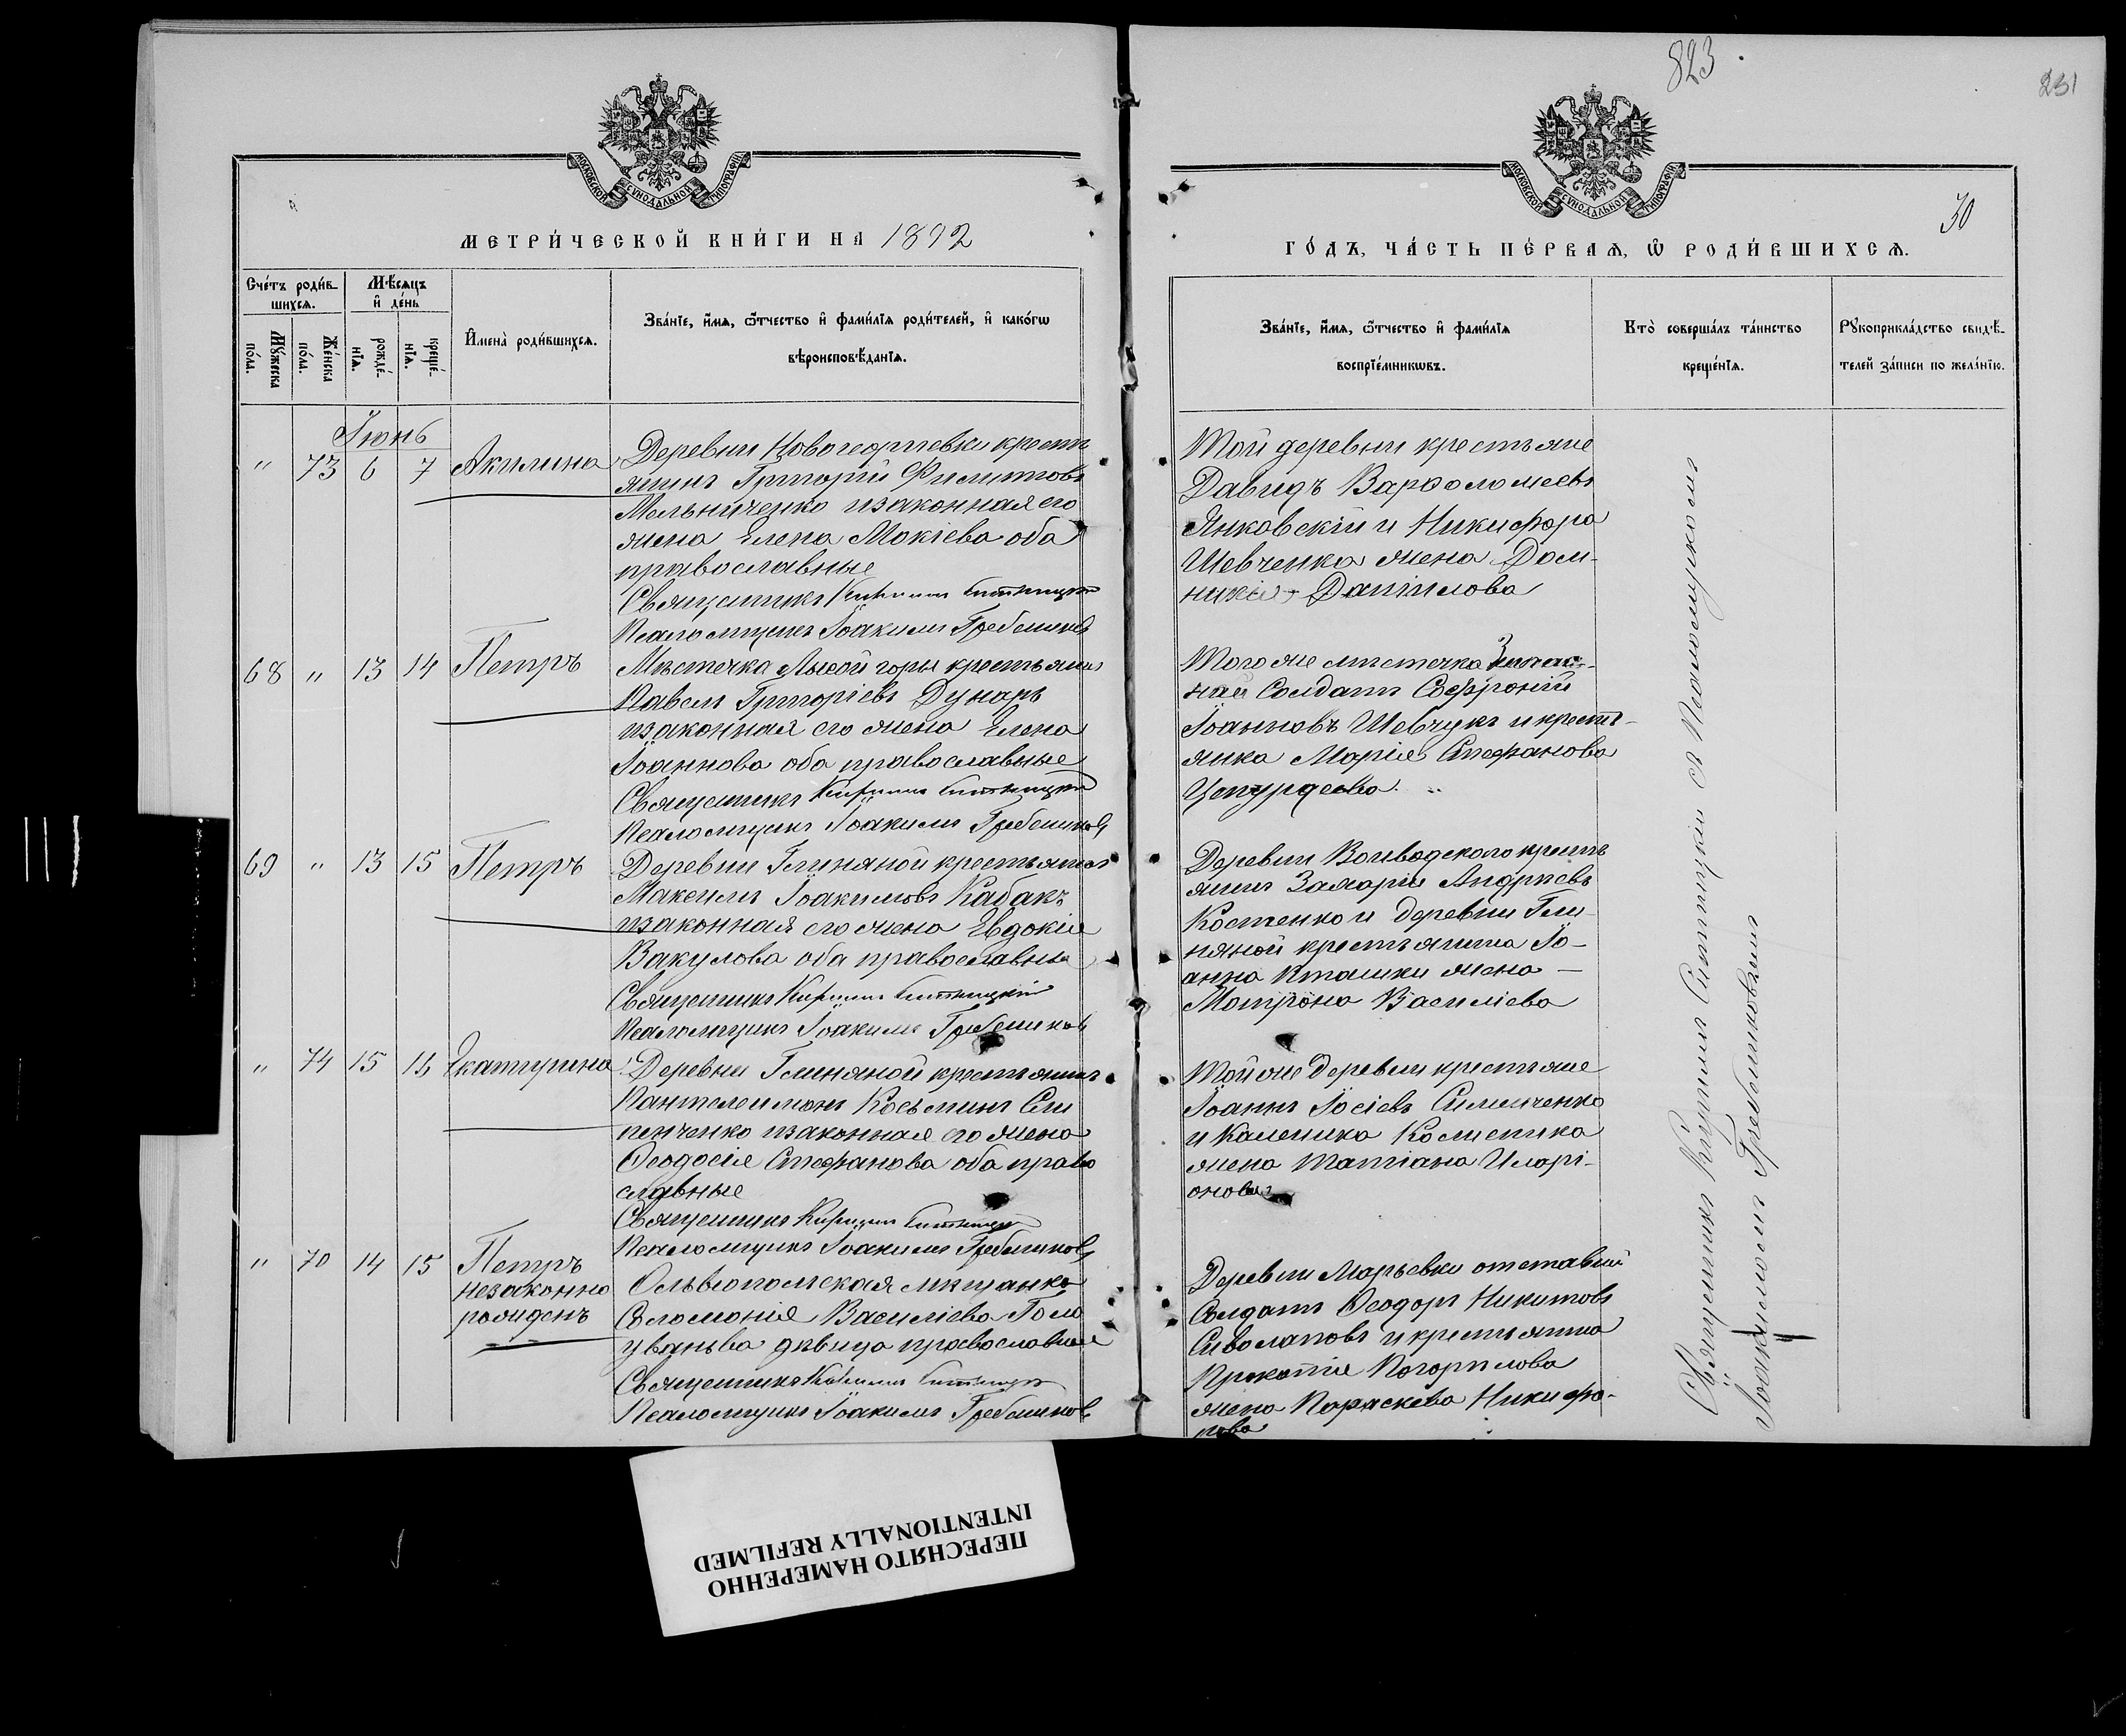 823.
231
30
МОСКОВСКОЙ СѴНОДАЛЬНОЙ ТИПОГРАФІИ
МОСКОВСКОЙ СѴНОДАЛЬНОЙ ТИПОГРАФІИ
МЕТРИ́ЧЕСКОЙ КНИ́ГИ НА 1892
ГО́ДЪ, ЧА́СТЬ ПЕ́РВАѦ, Ѡ҆ РОДИ́ВШИХСѦ.
Сче́тъ роди́в-
шихсѧ.
Мѣ́сѧцъ
и҆ де́нь
Мꙋ́жеска по́ла.
Же́нска по́ла.
рожде́-нїѧ.
креще́-нїѧ.
И҆мена̀ роди́вшихсѧ.
Зва́нїе, и҆́мѧ, ѻ҆́тчество и҆ фами́лїѧ роди́телей, и҆ како́гѡ
вѣроисповѣ́данїѧ.
Зва́нїе, и҆́мѧ, ѻ҆́тчество и҆ фами́лїѧ
воспрїе́мникѡвъ.
Кто̀ соверша́лъ та́инство
креще́нїѧ.
Рꙋкоприкла́дство свидѣ́-
телей за́писи по жела́нїю.
Іюнь
" 73 6 7 Акилина
Деревни Новогеоргіевки кресть
янинъ Григорій Филиповъ
Мельниченко и законная его
жена Елена Мокіева оба
православные
Священникъ Кириллъ Ситницкій
Псаломщикъ Іоакимъ Гребенниковъ
Той деревни крестьяне
Давидъ Варѳоломеевъ
Янковскій и Никифора
Шевченка жена Дом-
никія Даніилова
68 " 13 14 Петръ
Мѣстечка Лысой горы крестьянинъ
Павелъ Григоріевъ Дунаръ
и законная его жена Елена
Іоаннова оба православные
Священникъ Кириллъ Ситницкій
Псаломщикъ Іоакимъ Гребенниковъ
Того же мѣстечка Запас-
ный Солдатъ Софроній
Іоанновъ Шевчукъ и кресть-
янка Марія Стефанова
69 " 13 15 Петръ
Деревни Глиняной крестьянинъ
Максимъ Іоакимовъ Кабакъ
и законная его жена Евдокія
Вакулова оба православные
Священникъ Кириллъ Ситницкій
Псаломщикъ Іоакимъ Гребенниковъ
Деревни Воеводского кресть
янинъ Захарій Андреевъ
Костенко и деревни Гли-
няной крестьянина Іо-
анна Пташки жена –
Матрона Василіева
" 74 15 16 Екатерина
Деревни Глиняной крестьянинъ
Пантелеимонъ Косьминъ
и законная его жена
Ѳеодосія Стефанова оба право
славные
Священникъ Кириллъ Ситницкій
Псаломщикъ Іоакимъ Гребенниковъ
Той же деревни крестьяне
Іоаннъ Іосіевъ Симченко
и Калиника Колисника
жена Татіана Иларі-
онова
" 70 14 15 Петръ
незаконно
рожденъ
Ольвіопольская мѣщанка
Соломонія Василіева Голо
дѣвица православная
Священникъ Кириллъ Ситницкій
Псаломщикъ Іоакимъ Гребенниковъ
Деревни Марьевки отставной
Солдатъ Ѳеодоръ Никитовъ
Сиволаповъ и крестьянина
Прокопія Погорилова
жена Параскева Никифо-
рова
Священникъ Кириллъ Ситницкій съ Псаломщикомъ
Іоакимомъ Гребенниковымъ
ПЕРЕСНЯТО НАМЕРЕННО
INTENTIONALLY REFILMED